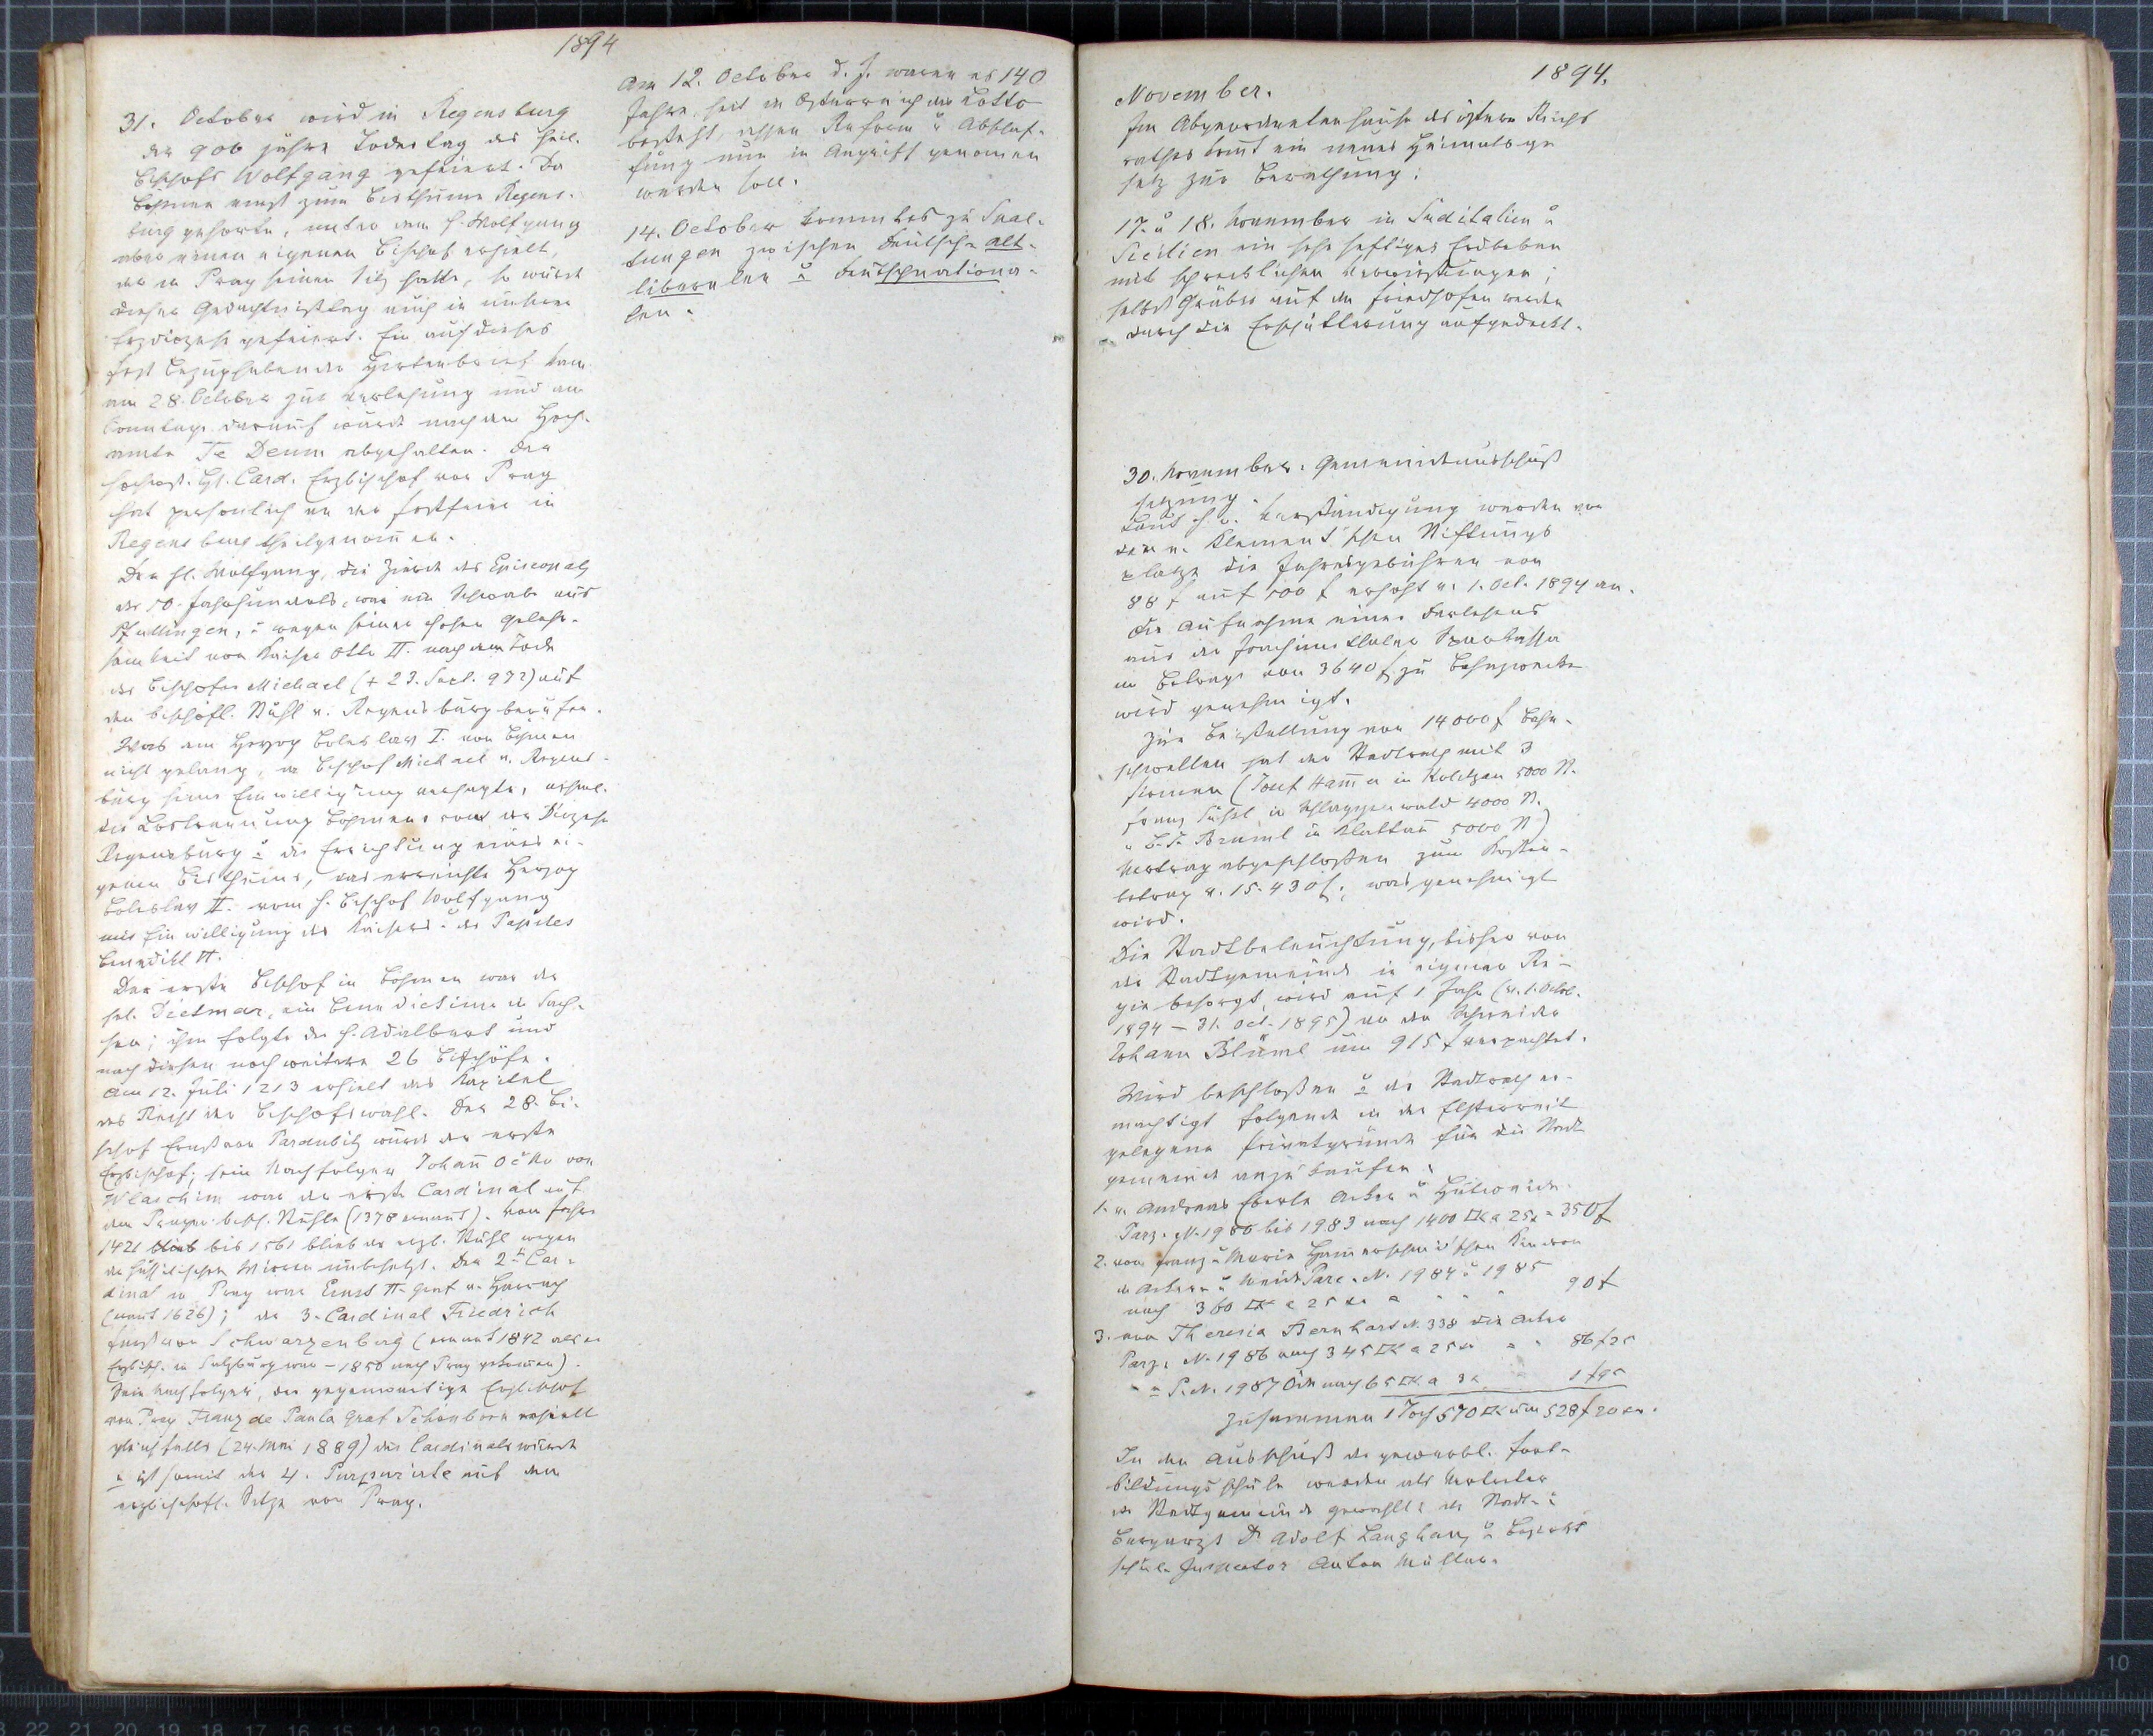 1894
31. October wird in Regensburg
der 900 jährige Todestag des heil.
Bischofs Wolfgang gefeiert. Da
Böhmen einst zum Bisthume Regens-
burg gehörte, unter dem h. Wolfgang
aber einen eigenen Bischof erhielt,
der in Prag seinen Sitz hatte, so wurde
dieser Gedächtnißtag auch in unserer
Erzdiözese gefeiert. Ein auf dieses
Fest Bezug habender Hirtenbrief kam
am 28. October zur Verlesung und am
Sonntage darauf wurde nach dem Hoch-
amte Te Deum abgehalten. Der
hochwst. H. Card. Erzbischof von Prag
hat persönlich an der Festfeier in
Regensburg theilgenom̄en.
Der hl. Wolfgang, die Zierde des Episcopats
des 10. Jahrhunderts, war ein Schwabe aus
Pfullingen, u wegen seiner hohen Gelehr-
samkeit von Kaiser Otto II. nach dem Tode
des Bischofes Michael († 23. Sept. 972) auf
den bischöfl. Stuhl v. Regensburg berufen.
Was dem Herzog Boleslav I. von Böhmen
nicht gelang, da Bischof Michael v. Regens-
burg seine Einwilligung versagte,
die Lostrennung Böhmens von der Diözese
Regensburg u die Errichtung eines ei-
genen Bisthums, das erreichte Herzog
Boleslav II. vom h. Bischof Wolfgang
mit Einwilligung des Kaisers u des Papstes
Benedikt VI.
Der erste Bischof in Böhmen war der
sel. Dietmar, ein Benedictiner in Sach-
sen; ihm folgte der h. Adalbert und
nach diesem noch weitere 26 Bischöfe.
Am 12. Juli 1213 erhielt das Kapitel
das Recht der Bischofswahl. Der 28. Bi-
schof Ernst von Pardubitz wurde der erste
Erzbischof; sein Nachfolger Johan̄ Očko von
Wlaschim war der erste Cardinal auf
dem Prager bischl. Stuhle (1378 ernan̄t). Vom Jahre
1421 bis 1561 blieb der erzb. Stuhl wegen
der hussitischen Wirren unbesetzt. Der 2te Car-
dinal in Prag war Ernst Graf v. Harrach
(ernan̄t 1626); der 3. Cardinal Friedrich
Fürst von Schwarzenberg (ernan̄t 1842 als er
Erzbisch. in Salzburg war – 1850 nach Prag gekom̄en).
Sein Nachfolger, der gegenwärtige Erzbischof
von Prag Franz de Paula Graf Schönborn erhielt
gleichfalls (24. Mai 1889) die Cardinalswürde
u ist somit der 4. Purpurirte auf dem
erzbischöfl. Sitze von Prag.
Am 12. October d. J. waren es 140
Jahre, seit in Österreich das Lotto
besteht, dessen Reform u Abschaf-
fung nun in Angriff genom̄en
werden soll.
14. October kommt es zu Spal-
tungen zwischen deutsch-alt-
liberalen u deutschnationa-
len.
1894.
November.
Im Abgeordnetenhause des österr. Reichs
rathes kom̄t ein neues Heimatsge
setz zur Berathung.
17. u 18. November in Süditalien u
Sicilien ein sehr heftiges Erdbeben
mit schrecklichen Verwüstungen;
selbst Gräber auf den Friedhöfen werden
durch die Erschütterung aufgedeckt.
30. November. Gemeindeausschuß
sitzung.
Laut h. o. Verständigung werden von
dem v. Klement'schen Stiftungs
platze die Jahresgebühren von
88 f auf 100 f erhöht v. 1. Oct. 1894 an.
Die Aufnahme eines Darlehens
aus der Joachimsthaler Sparkassa
im Betrage von 3640 f zu Bahnzwecken
wird genehmigt.
Zur Beistellung von 14000 f Bahn-
schwellen hat der Stadtrath mit 3
Firmen (Josef Ham̄er in Kolitzau 5000 St.
Franz in Schlaggenwald 4000 St.
u Bruml in Klattau 5000 St)
Vertrag abgeschloßen zum Kosten-
betrag v. 15.430 f; was genehmigt
wird.
Die Stadtbeleuchtung, bisher von
der Stadtgemeinde in eigener Re-
gie besorgt, wird auf 1 Jahr (v. 1. Octob.
1894 – 31. Oct. 1895) an den Schneider
Johann Blüml um 915 f verpachtet.
Wird beschloßen u der Stadtrath er-
mächtigt folgende in der Elsterweit
gelegene Privatgründe für die Stadt
gemeinde anzukaufen:
1. v. Andreas Eberle Acker u Hutweide
Parz. N. 1980 bis 1983 nach 1400 □K a 25x = 350 f
2. von Franz u Maria Ham̄erschmid'schen Kindern
die Acker u Weide Parc. N. 1984 u 1985
nach 360 □K a 25 xr = " " " 90 f
3. von Theresia Bernhart N. 338 die Acker
Parz. N. 1986 nach 345 □K a 25 xr = " 86 f 25
" " P. N. 1987 Öde nach 65 □K a 3x " 1 f 95
Zusammen 1 Joch 570 □K um 528 f 20 xr.
In den Ausschuß der gewerbl. Fort-
bildungsschule werden als Vertreter
der Stadtgemeinde gewählt: der Stadt- u
Bergarzt Dr Adolf Langhans u Bezirks
schul. Inspector Anton Müller.